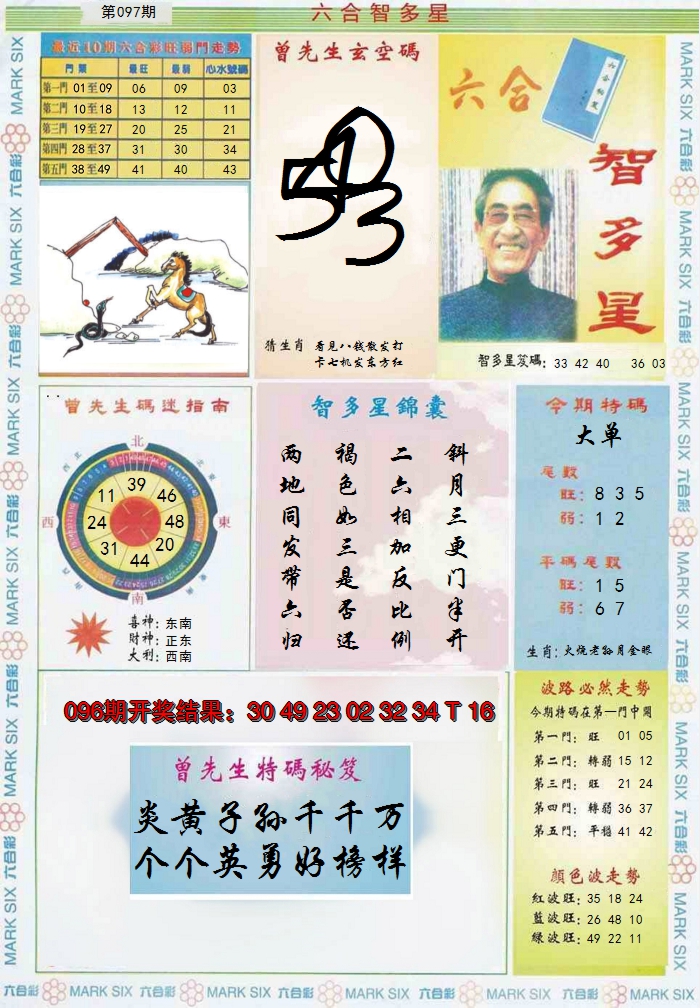 第097期
六合智多星
最近10期六合彩旺弱門走勢
門類 最旺 最弱 心水號碼
第一門 01至09 06 09 03
第二門 10至18 13 12 11
第三門 19至27 20 25 21
第四門 28至37 31 30 34
第五門 38至49 41 40 43
曾先生玄空碼
猜生肖 看見八钱散发打
卡七机发东方红
六合
六合秘笈
智多星
智多星笈碼: 33 42 40 36 03
曾先生碼迷指南
北
西北
東北
西
東
西南
東南
南
39
46
48
20
44
31
24
11
喜神: 东南
財神: 正东
大利: 西南
智多星錦囊
斜月三更门半开
二六相加反比例
褐色如三是否还
两地同发带六归
今期特碼
大单
尾數
旺: 8 3 5
弱: 1 2
平碼尾數
旺: 1 5
弱: 6 7
生肖: 火烧老孙月金眼
096期开奖结果: 30 49 23 02 32 34 T 16
曾先生特碼秘笈
炎黄子孙千千万
个个英勇好榜样
波路必然走勢
今期特碼在第一門中開
第一門: 旺 01 05
第二門: 轉弱 15 12
第三門: 旺 21 24
第四門: 轉弱 36 37
第五門: 平穩 41 42
顏色波走勢
紅波旺: 35 18 24
藍波旺: 26 48 10
绿波旺: 49 22 11
六合彩 MARK SIX 六合彩 MARK SIX 六合彩 MARK SIX 六合彩 MARK SIX 六合彩 MARK SIX